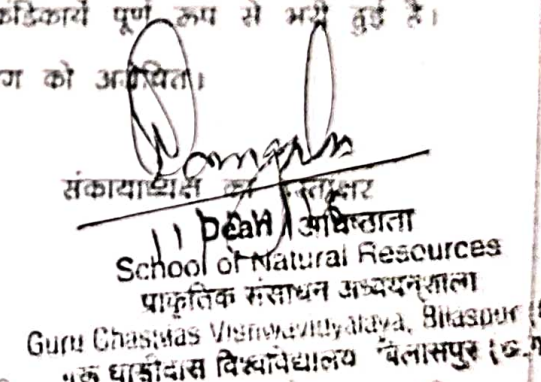 कंडिकायें पूर्ण रूप से भरी हुई है।
ग को अग्रेषित।
संकायाध्यक्ष का हस्ताक्षर
Dean / अधिष्ठाता
School of Natural Resources
प्राकृतिक संसाधन अध्ययनशाला
Guru Ghasidas Vishwavidyalaya, Bilaspur (
गुरू घासीदास विश्वविद्यालय बिलासपुर (छ.ग